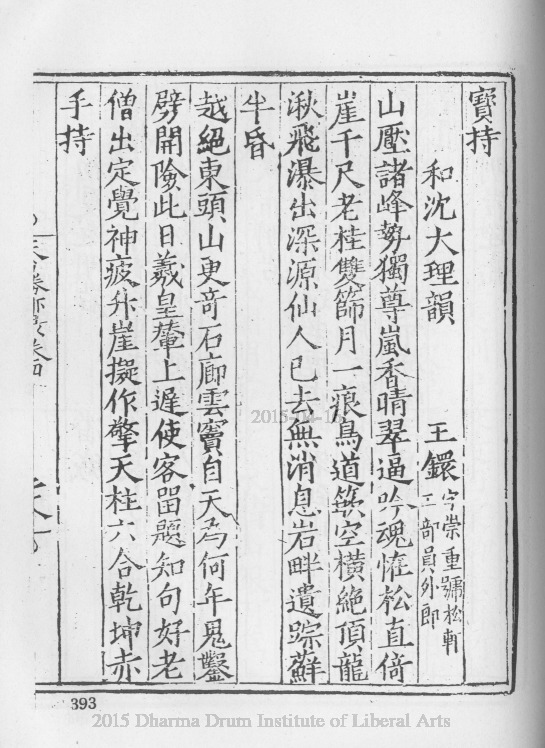 寶持
和沈大理韻　王鐶字崇重號松軒工部員外郎
山壓諸峰勢獨尊嵐香晴翠逼吟魂恠松直倚
崖千尺老桂雙篩月一痕鳥道篏空横絶頂龍
湫飛瀑出深源仙人已去無消息岩畔遺踪蘚
半昏
越絕東頭山更竒石廊雲竇自天為何年鬼鑿
劈開險此日羲皇輦上遲使客畱題知句好老
僧出定覺神疲升崖擬作擎天柱六合乾坤赤
手持
393
2015-04-15
2015 Dharma Drum Institute of Liberal Arts